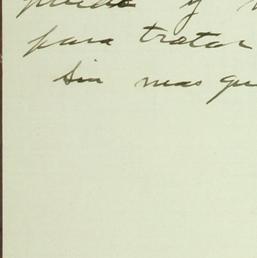 puedo y
para tratar
Sin mas que